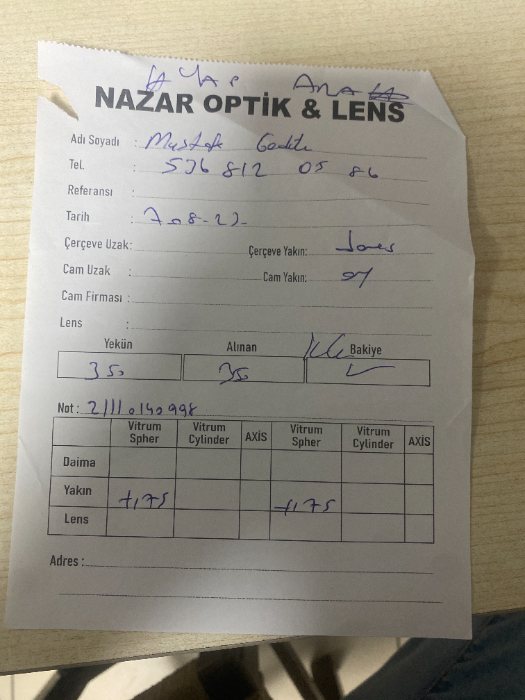 NAZAR OPTİK & LENS
Adı Soyadı : Mustafa
Tel. : 536 812 05 86
Referansı :
Tarih : 7.08-23-
Çerçeve Uzak: Çerçeve Yakın:
Cam Uzak : Cam Yakın:
Cam Firması :
Lens :
Yekün Alınan Bakiye
350 350
Not : 21110140998
Vitrum Spher Vitrum Cylinder AXİS Vitrum Spher Vitrum Cylinder AXİS
Daima
Yakın +1,75 +1,75
Lens
Adres :